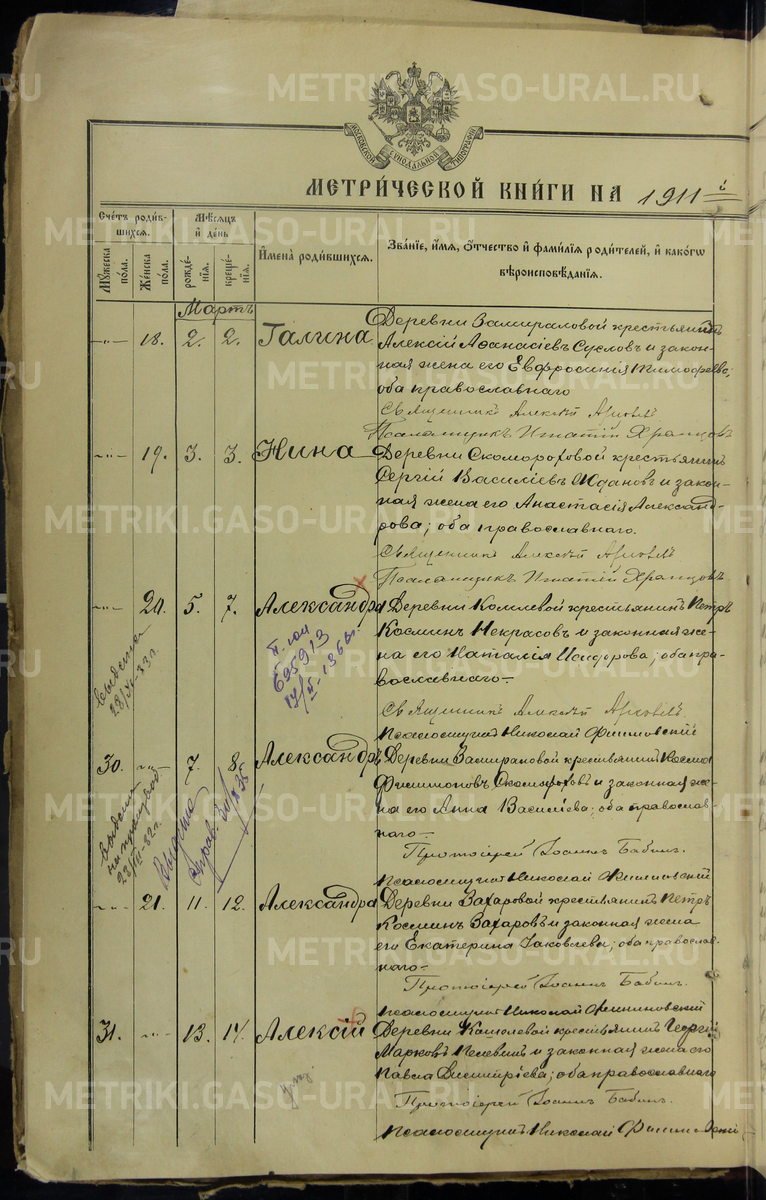 METRIKI.GASO-URAL.RU
МОСКОВСКОЙ СѴНОДАЛЬНОЙ ТИПОГРАФІИ
МЕТРИ́ЧЕСКОЙ КНИ́ГИ НА 1911й
Счétъ роди́в-
шихсѧ.
Мꙋжеска по́ла.
Же́нска по́ла.
Мѣ́сѧцъ
и҆ де́нь
рожде́-
нїѧ.
креще́-
нїѧ.
И҆мена̀ роди́вшихсѧ.
Зва́нїе, и҆́мѧ, ѻ҆́тчество и҆ фами́лїѧ роди́телей, и҆ како́гѡ
вѣроисповѣ́данїѧ.
Мартъ
-"- 18. 2. 2. Галина
Деревни Замираловой крестьянинъ
Алексій Аѳанасіевъ Сусловъ и закон-
ная жена его Евфросинія Тимофеева;
оба православнаго
Священникъ Алексій
Псаломщикъ Игнатій Храмцовъ
-"- 19. 3. 3. Нина
Деревни Скомороховой крестьянинъ
Сергій Василіевъ Ждановъ и закон-
ная жена его Анастасія Александ-
рова; оба православнаго.
Священникъ Алексій
Псаломщикъ Игнатій Храмцовъ
-"- 20. 5. 7. Александра
Деревни Комлевой крестьянинъ Петръ
Косминъ Некрасовъ и законная же-
на его Наталія Исидорова; оба пра-
вославнаго
Священникъ Алексій
Псаломщикъ Николай
695913
30. -"- 7. 8. Александръ
Деревни Замираловой крестьянинъ Косма
Филипповъ Скомороховъ и законная же-
на его Анна Василіева; оба православ-
наго
Протоіерей Іоаннъ Бабинъ.
Псаломщикъ Николай
Выдана
-"- 21. 11. 12. Александра
Деревни Захаровой крестьянинъ Петръ
Косминъ Захаровъ и законная жена
его Екатерина Іаковлева; оба православ-
наго
Протоіерей Іоаннъ Бабинъ.
Псаломщикъ Николай
31. -"- 13. 14. Алексій
Деревни Кашелевой крестьянинъ Георгій
Марковъ Пелевинъ и законная жена его
Павла Димитріева; оба православнаго
Протоіерей Іоаннъ Бабинъ.
Псаломщикъ Николай